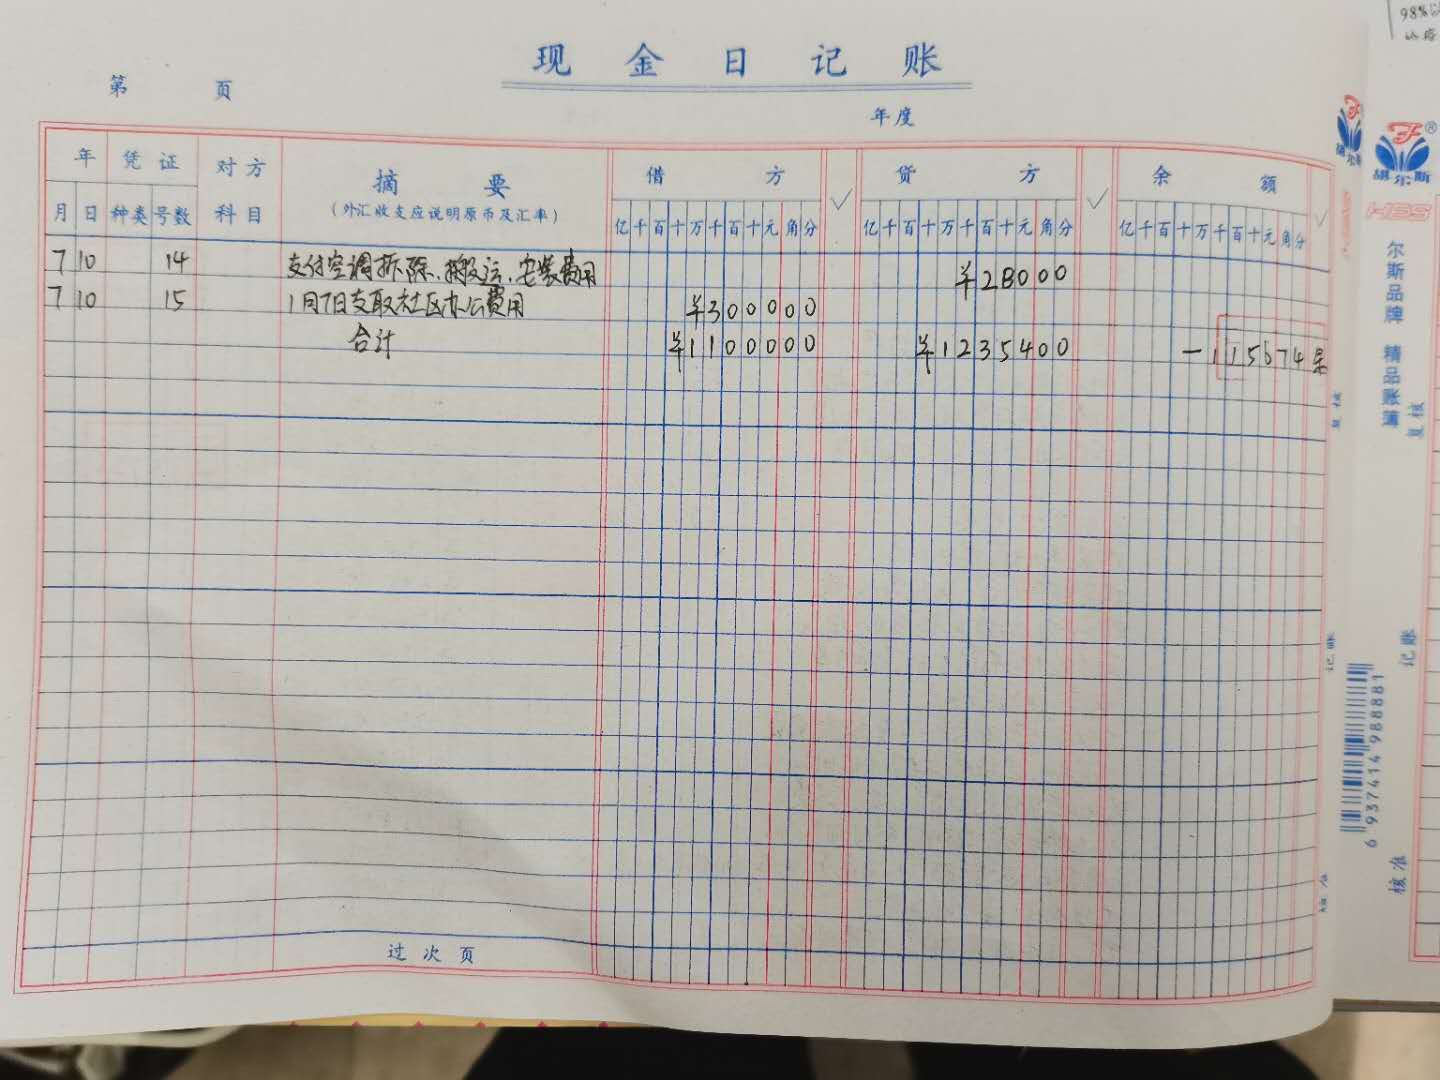 现金日记账
第 页
年度
年 凭证 对方科目 摘要 借方 ✓ 贷方 ✓ 余额 ✓
月 日 种类 号数 (外汇收支应说明原币及汇率) 亿千百十万千百十元角分 亿千百十万千百十元角分 亿千百十万千百十元角分
7 10 14 支付空调拆除、搬运、安装费用 ¥28000
7 10 15 1月7日支取社区办公费用 ¥300000
合计 ¥1100000 ¥1235400 -115674
过次页
复核
记账
胡尔斯
HES
尔斯品牌 精品账簿
复核
记账
核准
6937414988881
98%以